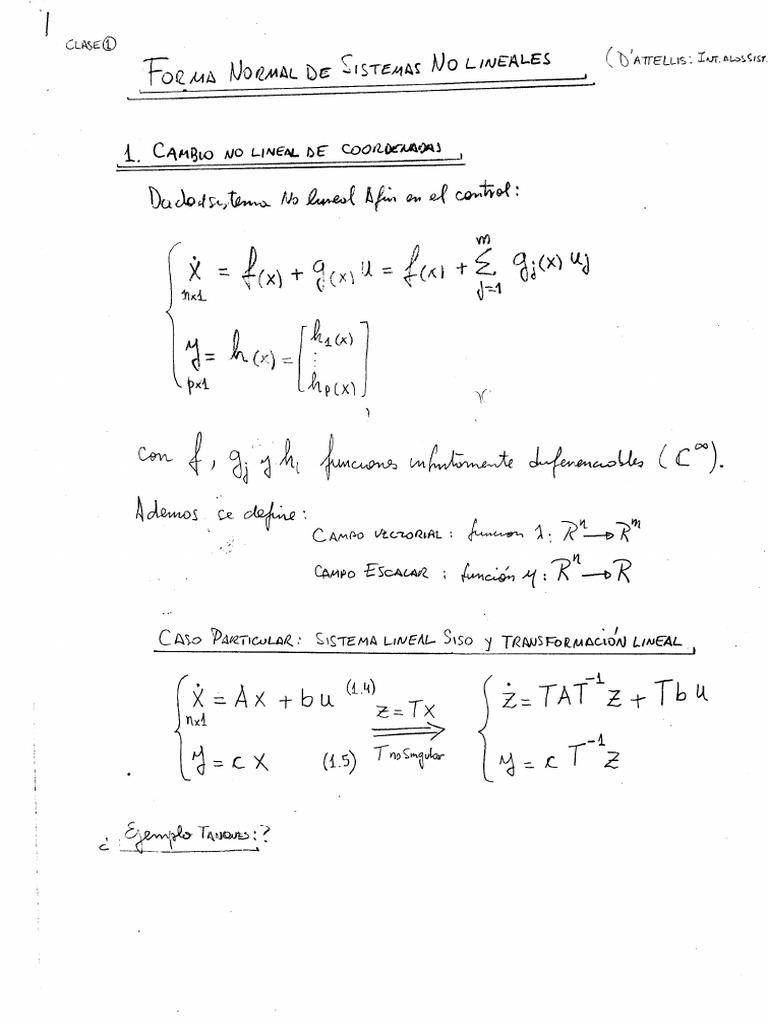 1
CLASE ①
FORMA NORMAL DE SISTEMAS NO LINEALES
(D'ATTELLIS: INT. A LOS SIST.
1. CAMBIO NO LINEAL DE COORDENADAS
Dado el sistema No lineal Afín en el control:
ẋ = f(x) + g(x) u = f(x) + Σ gj(x) uj
n×1
m
j=1
y = h(x) = [h1(x) ⋮ hp(x)]
p×1
con f, gj y hi funciones infinitamente diferenciables (C^∞).
Ademas se define:
CAMPO VECTORIAL: funcion λ: R^n → R^m
CAMPO ESCALAR: función η: R^n → R
CASO PARTICULAR: SISTEMA LINEAL SISO Y TRANSFORMACIÓN LINEAL
ẋ = Ax + bu (1.4)
n×1
y = c x (1.5)
z = Tx
T no singular
ż = TAT^-1 z + Tbu
y = c T^-1 z
¿ Ejemplo TANQUES:?